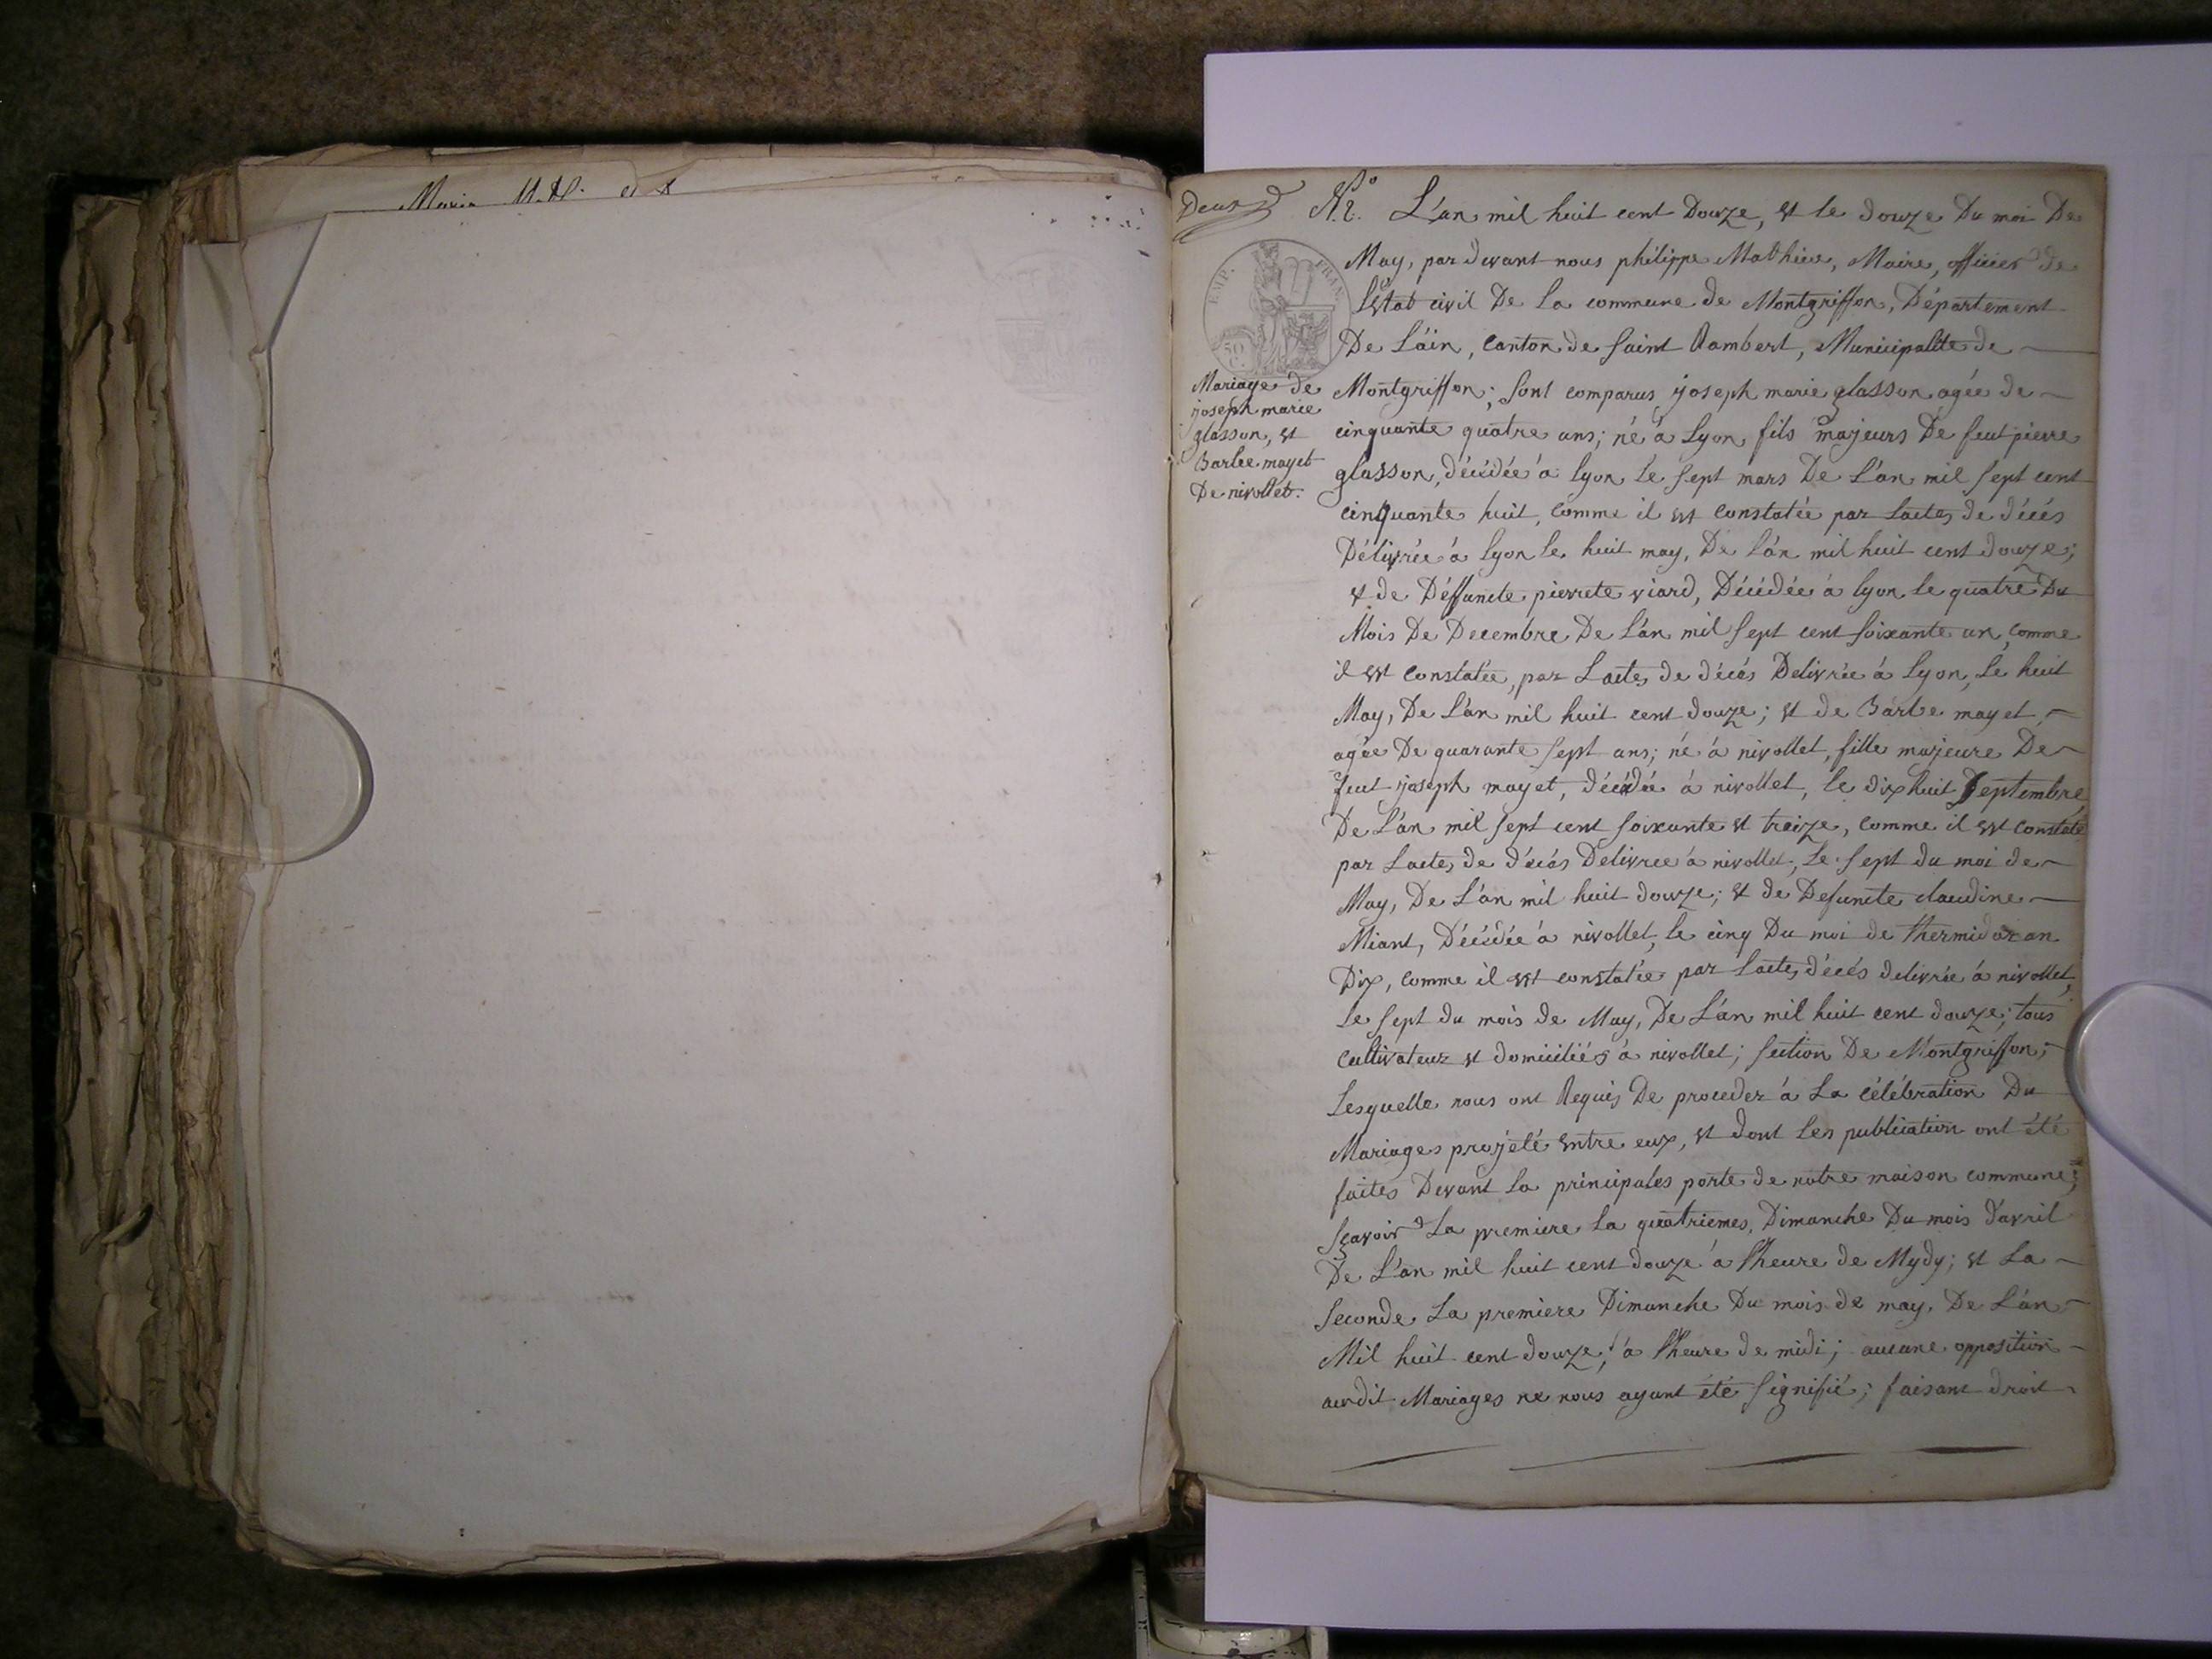 Deux
N.º 2. L'an mil huit cent Douze, et le douze Du moi De
May, par devant nous philippe Mathieu, Maire, officier de
L'Etat civil De La commune de Montgriffon, Département
De L'áin, Canton de Saint Rambert, Municipalité de
Montgriffon; sont comparus joseph marie glasson agée de
cinquante quatre ans; né á Lyon fils majeurs De feut pierre
glasson, décédée á lyon le sept mars De L'an mil sept cent
cinquante huit, comme il est constatée par Lactes de décés
Délivrée á lyon le huit may, De L'an mil huit cent douze;
et de Déffuncte pierrete viard, Décédée á lyon le quatre Du
Mois De Decembre De L'an mil sept cent soixante un, comme
il est constatée, par Lactes de décés Delivrée á Lyon, Le huit
May, De L'an mil huit cent douze; et de Barbe mayet,
agée De quarante sept ans; né á nivollet, fille majeure De
feut joseph mayet, décédée á nivollet, le dix huit Septembre
De L'an mil sept cent soixante et treize, comme il est constaté
par Lactes de décés Delivree á nivollet, Le sept du moi de
May, De L'an mil huit douze; et de Defuncte claudine
Miant, Décédée á nivollet, le cinq Du moi de thermidor an
Dix, comme il est constatée par Lactes décés delivrée á nivollet,
Le sept du mois de May, De L'an mil huit cent douze; tous
cultivateur et domiciliés á nivollet; section De Montgriffon;
Lesquelle nous ont Requis De proceder á La célébration Du
Mariages projeté entre eux, et dont Les publication ont été
faites Devant La principales porte de notre maison commune;
Sçavoir La premiere La quatriemes, Dimanche Du mois d'avril
De L'an mil huit cent douze á l'heure de Mydy; et La
Seconde La premiere Dimanche Du mois de may, De L'an
Mil huit cent douze, á l'heure de midi; aucune opposition
audit Mariages ne nous ayant été signifié; faisant droit
EMP. FRAN.
50 C.
Mariage de
joseph marie
glasson, et
Barbe mayet
De nivollet.